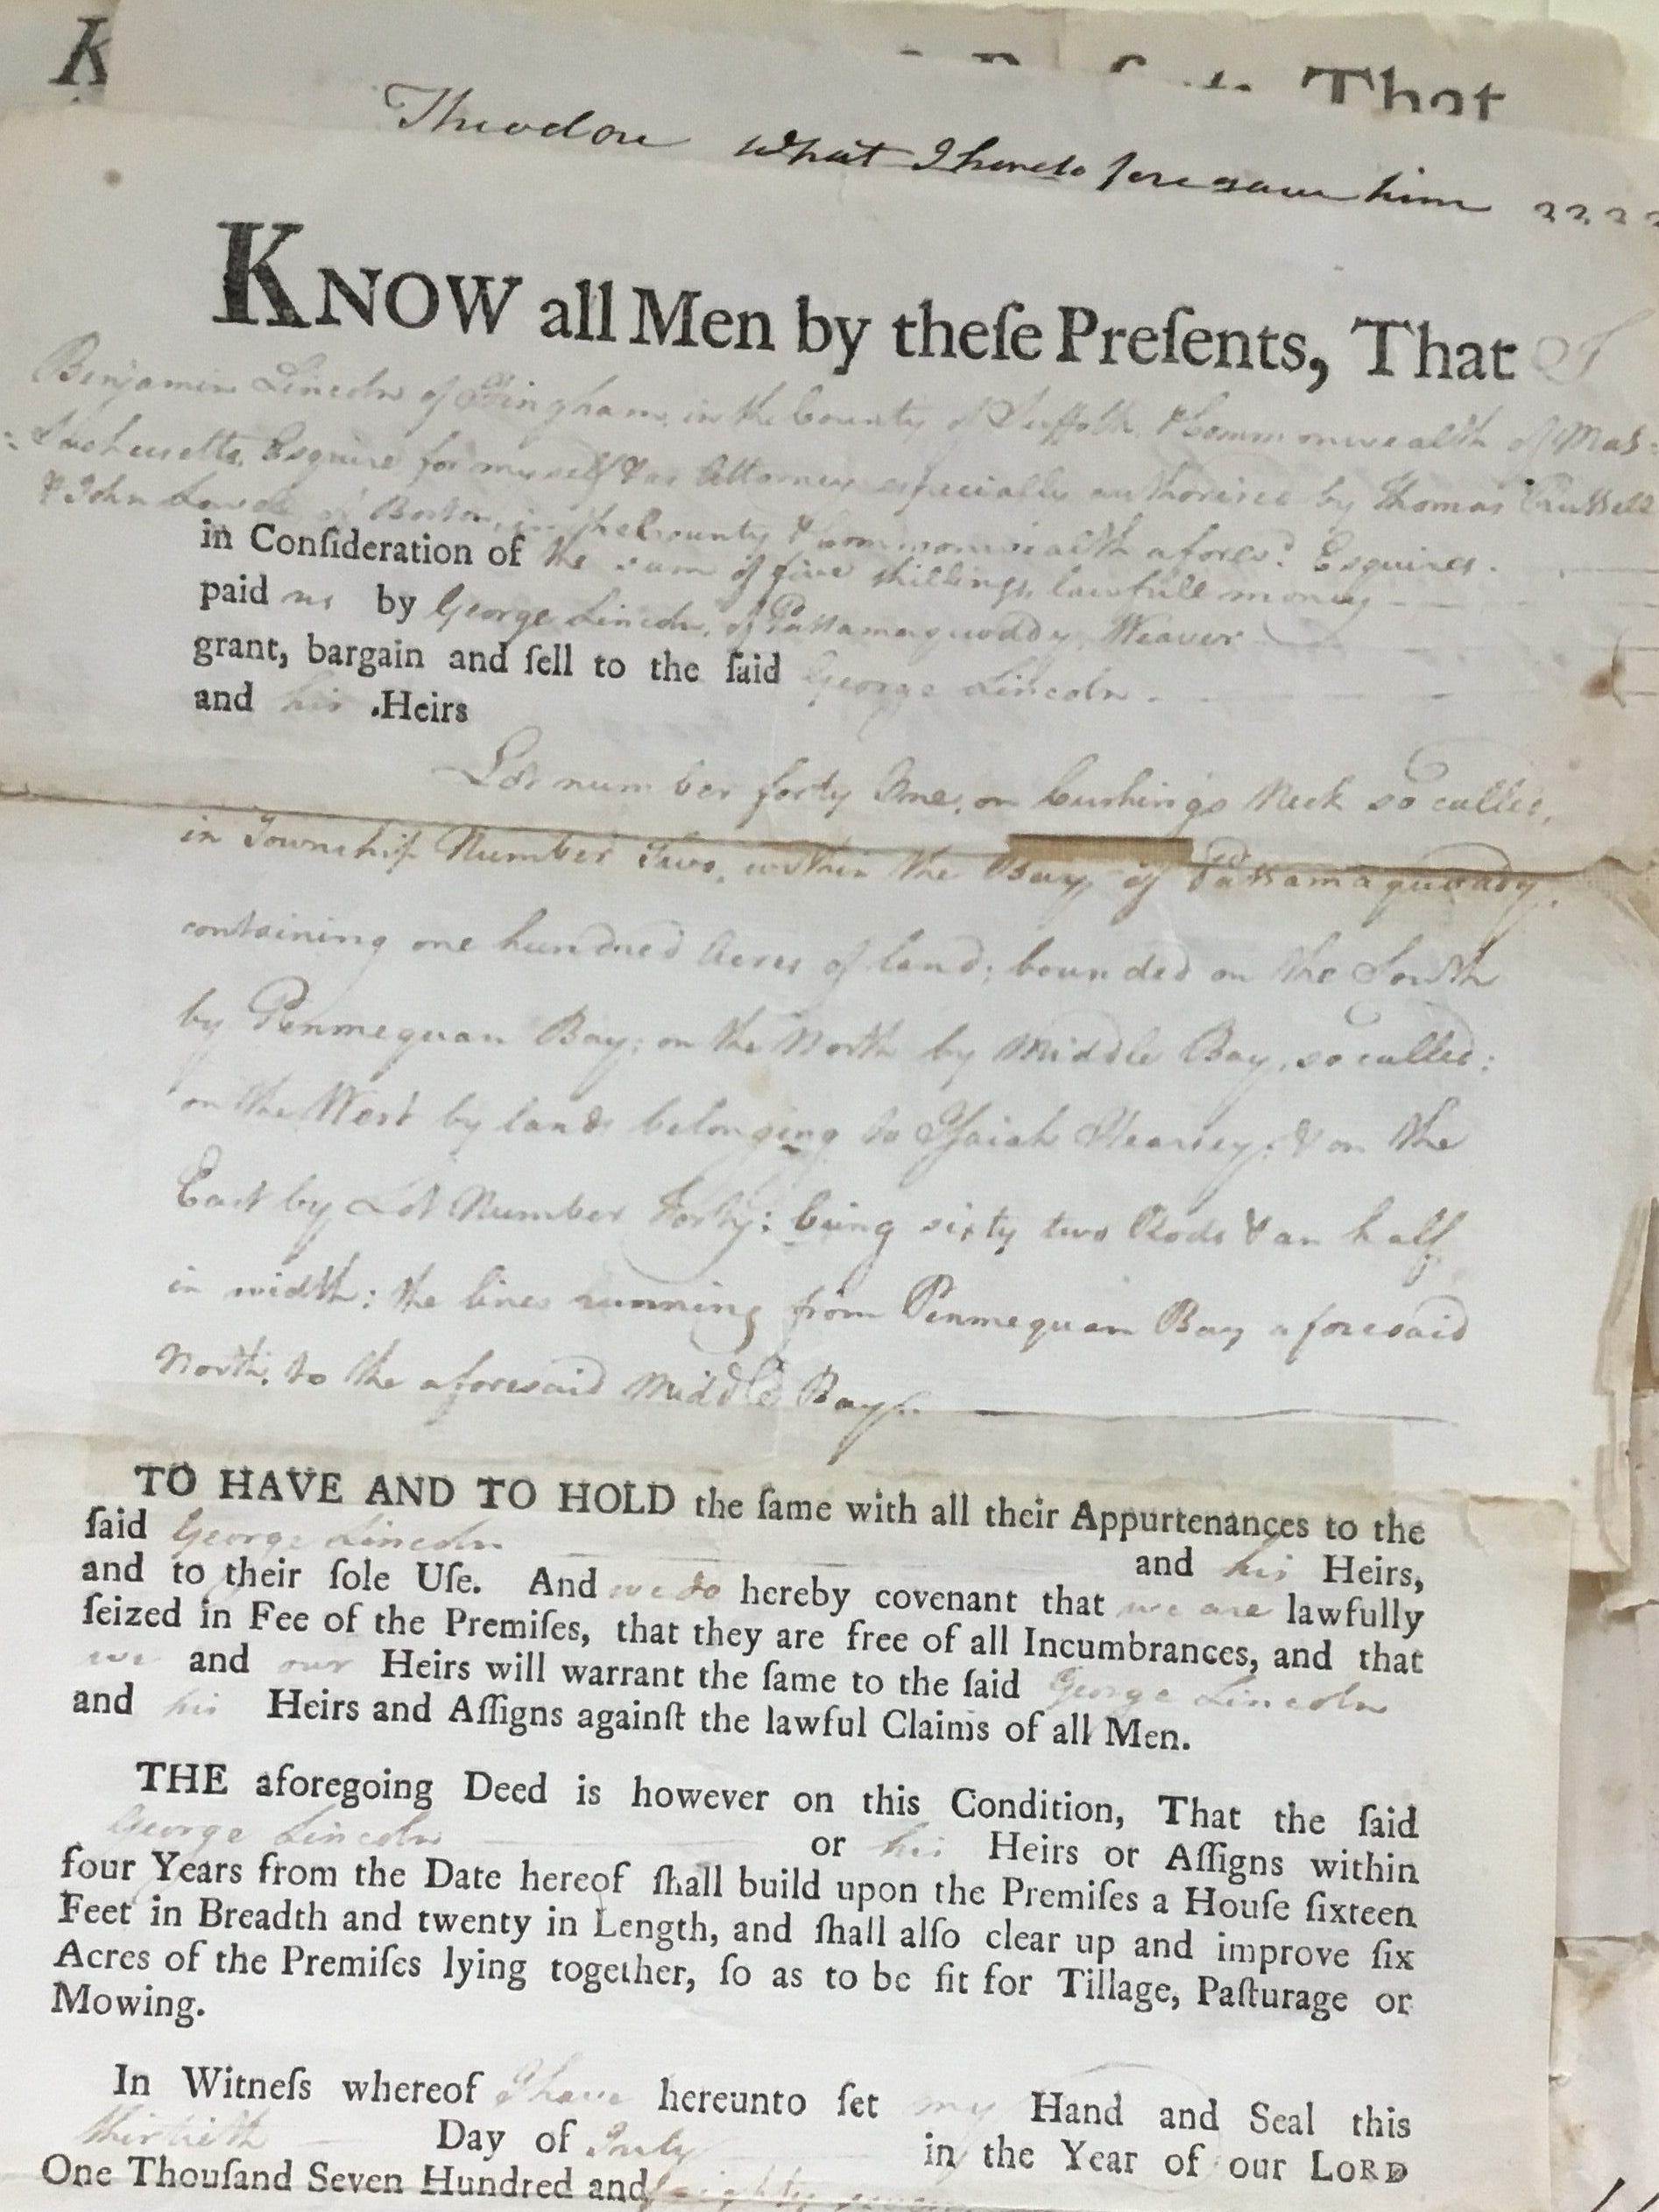 K
That
Theodore what I heretofore saw him ????
KNOW all Men by theſe Preſents, That I
Benjamin Lincoln of Hingham, in the County of Suffolk, & Commonwealth of Mas-
:sachusetts, Esquire for myself & as Attorney especially authorised by Thomas Russell
& John Lowell of Boston, in the County & Commonwealth aforesd. Esquires.
in Conſideration of the sum of five shillings, lawfull money
paid us by George Lincoln, of Passamaquoddy, Weaver
grant, bargain and ſell to the ſaid George Lincoln.
and his .Heirs
Lot number forty One, on Cushing's Neck so called,
in Township Number Two, within the Bay of Passamaquoddy,
containing one hundred Acres of land; bounded on the South
by Penmequan Bay; on the North by Middle Bay, so called:
on the West by lands belonging to Isaiah Hearsey; & on the
East by Lot Number Forty: being sixty two Rods & an half
in width: the lines running from Penmequan Bay aforesaid
North, to the aforesaid Middle Bay.
TO HAVE AND TO HOLD the ſame with all their Appurtenances to the
ſaid George Lincoln and his Heirs,
and to their ſole Uſe. And we do hereby covenant that we are lawfully
ſeized in Fee of the Premiſes, that they are free of all Incumbrances, and that
we and our Heirs will warrant the ſame to the ſaid George Lincoln
and his Heirs and Aſſigns againſt the lawful Claims of all Men.
THE aforegoing Deed is however on this Condition, That the ſaid
George Lincoln or his Heirs or Aſſigns within
four Years from the Date hereof ſhall build upon the Premiſes a Houſe ſixteen
Feet in Breadth and twenty in Length, and ſhall alſo clear up and improve ſix
Acres of the Premiſes lying together, ſo as to be fit for Tillage, Paſturage or
Mowing.
In Witneſs whereof I have hereunto ſet my Hand and Seal this
thirtieth Day of July in the Year of our LORD
One Thouſand Seven Hundred and eighty seven